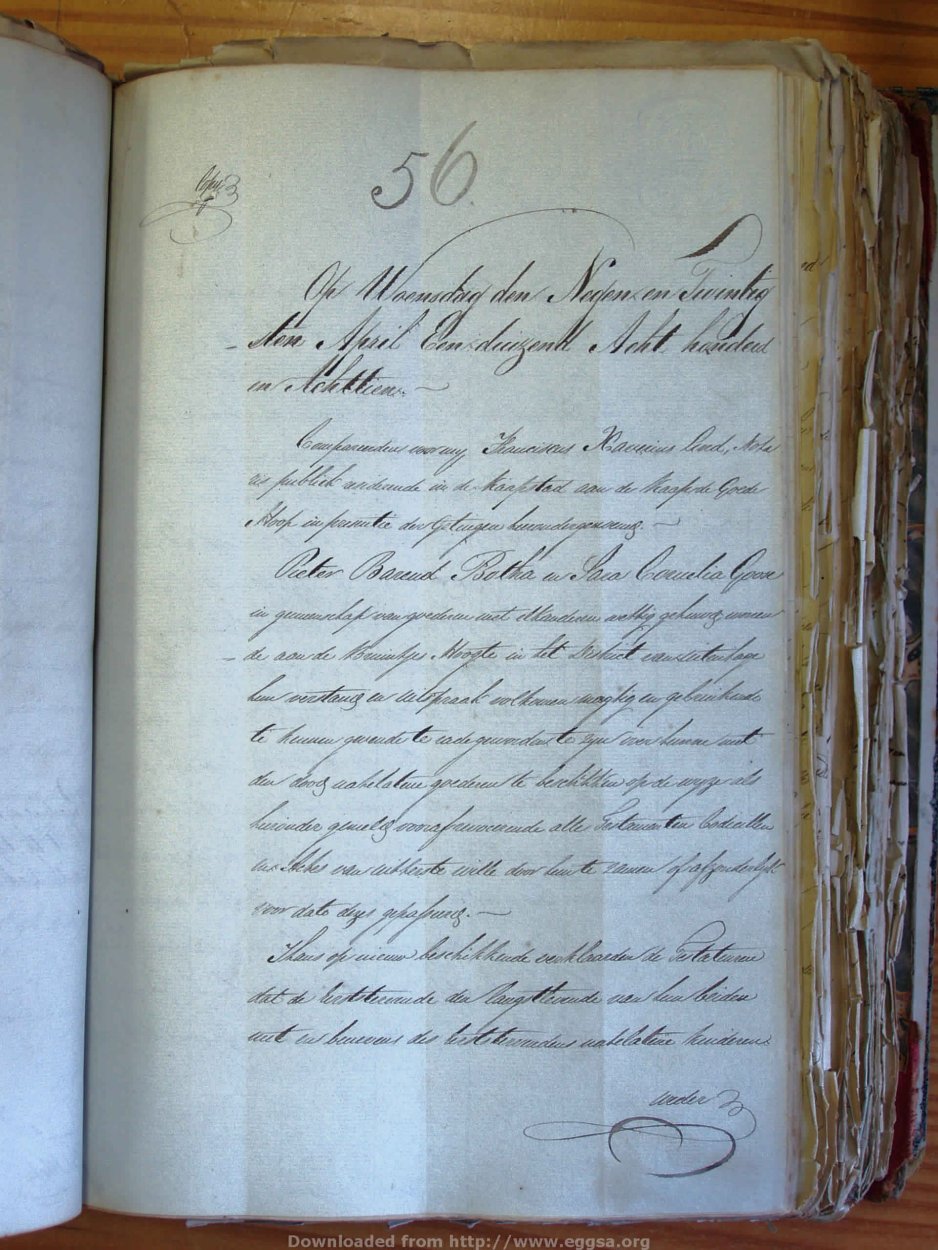 56.
Copij
Op Woensdag den Negen en Twintig
sten April Een duizend Acht honderd
en Achttien.
Compareerden voor my Franciscus Xaverius Lind, Nota
ris publiek resideerende in de Kaapstad aan de Kaap de Goede
Hoop in presentie der Getuigen hieronder genoemd.
Pieter Barend Botha en Sara Cornelia Goose
in gemeenschap van goederen met elkanderen wettig gehuwd, wonen
de aan de Bruintjes Hoogte in het District van Uitenhage
hun verstand en uitspraak volkomen magtig en gebruikende
te kennen gevende te rade geworden te zyn over hunne met
der dood natelatene goederen te beschikken op de wyze als
hieronder gemeld, vooraf revoceerende alle Testamenten Codicillen
en Aktes van uitterste wille door hun te zamen of afzonderlijk
voor dato dezes gepasseerd.
Thans op nieuw beschikkende verklaarden de Testateuren
dat de eerststervende den langstlevende van hun beiden
met en benevens des eerststervendens natelatene kinderen
ieder
Downloaded from http://www.eggsa.org